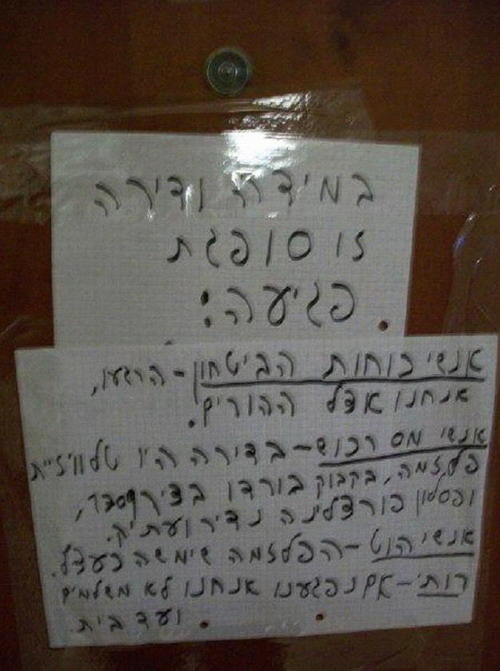 במידה ודירה
זו סופגת
פגיעה:
אנשי כוחות הביטחון - הרגעו,
אנחנו אצל ההורים.
אנשי מס רכוש - בדירה היו טלוויזיית
פלזמה, בקבוק בורדו בציר
ופסלון פורצלינה נדיר ועתיק.
אנשי הוט - הפלזמה שימשה כעציץ.
רותי - אם נפגענו אנחנו לא משלמים
ועד בית.